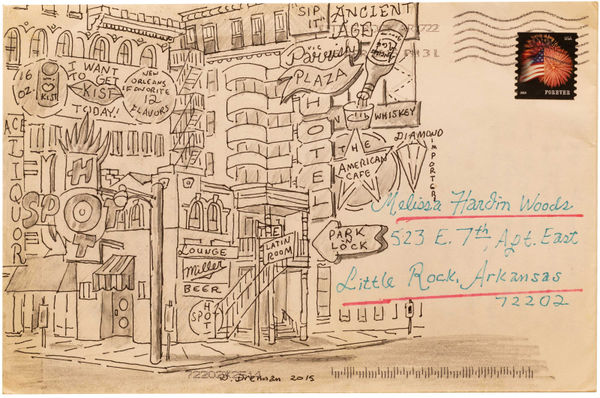 "SIP IT"
ANCIENT
AGE
722
PH 3 L
VIC
PLAZA
I WANT
TO
KIST
TODAY!
16
OZ.
KIST
NEW
ORLEANS
FAVORITE
12
FLAVORS
ACE
LIQUOR
HOT
SPOT
HOTEL
WHISKEY
THE
AMERICAN
CAFE
DIAMOND
IMPORTER
PARK
N
LOCK
THE
LATIN
ROOM
LOUNGE
Miller
BEER
HOT
SPOT
USA
FOREVER
Melissa Hardin Woods
523 E. 7th Apt. East
Little Rock, Arkansas
72202
D. Drennan 2015